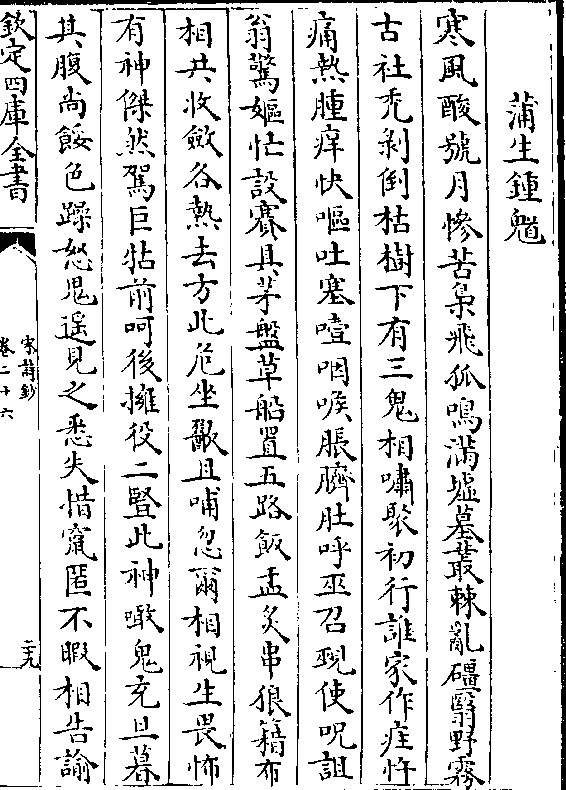 蒲生鍾馗
寒風酸號月慘苦梟飛狐鳴滿墟墓叢棘亂礓翳野霧
古社禿剥倒枯樹下有三鬼相嘯聚初行誰家作疰忤
痛熱腫痒快嘔吐塞噎咽喉脹臍肚呼巫召覡使呪詛
翁驚嫗忙設賽具茅盤草船置五路飯盂炙串狼籍布
相共收斂各熱去方此危坐歠且哺忽爾相視生畏怖
有神傑然駕巨牯前呵後擁役二豎此神噉鬼充旦暮
其腹尚餒色躁怒鬼遥見之悉失措竄匿不暇相告諭
欽定四庫全書
宋詩鈔
卷二十六
二九